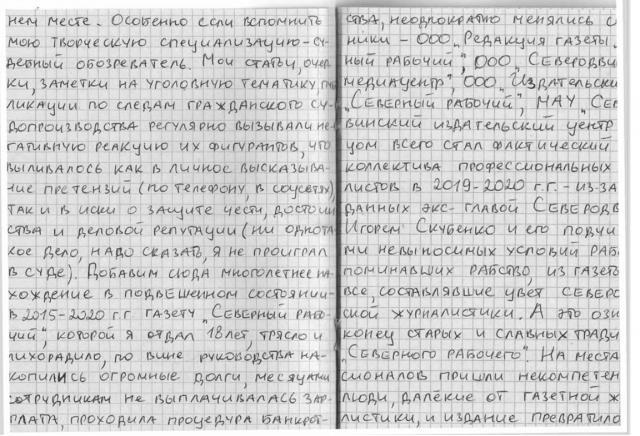 нем месте. Особенно если вспомнить
мою творческую специализацию – су-
дебный обозреватель. Мои статьи, очер-
ки, заметки на уголовную тематику, пу
ликации по следам гражданского су-
допроизводства регулярно вызывали не-
гативную реакцию их фигурантов, что
выливалось как в личное высказыва-
ние претензий (по телефону, в соцсетях)
так и в иски о защите чести, достоин
ства и деловой репутации (ни однота
кое дело, надо сказать, я не проиграл
в суде). Добавим сюда многолетнее на-
хождение в подвешенном состоянии –
в 2015-2020 г.г. газету „Северный рабо-
чий“, которой я отдал 18 лет, трясло и
лихорадило, по вине руководства на-
копились огромные долги, месяцами
сотрудникам не выплачивалась зар-
плата, проходила процедура банкрот-
ства, неоднократно менялись с
ники – ООО „Редакция газеты „
ный рабочий“, ООО „Северодви
медиацентр“, ООО „Издательски
„Северный рабочий“, МАУ „Сев
винский издательский центр
цом всего стал фактический
коллектива профессиональных
листов в 2019-2020 г.г. – из-за
данных экс-главой Северодв
Игорем Скубенко и его подручн
ми невыносимых условий раб
поминавших рабство, из газеты
все, составлявшие цвет северо
ской журналистики. А это озн
конец старых и славных тради
„Северного рабочего“. На места
сионалов пришли некомпетен
люди, далёкие от газетной ж
листики, и издание превратило